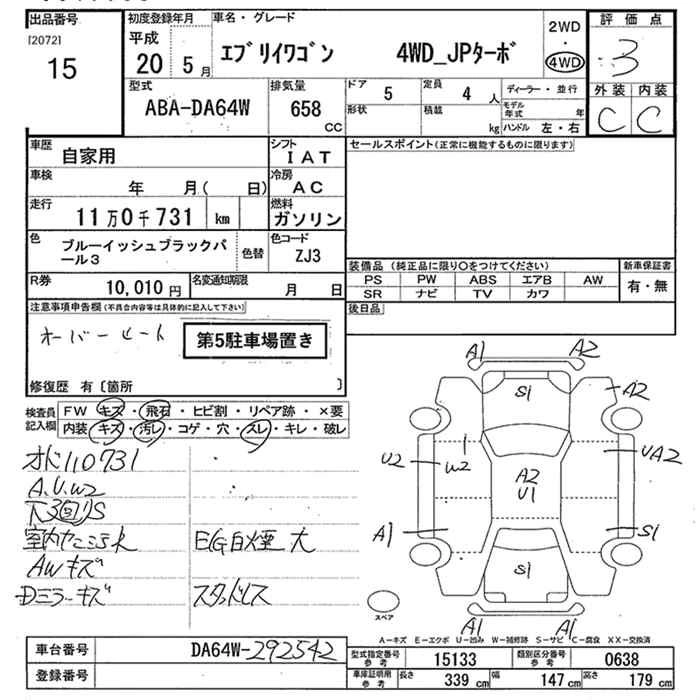 出品番号
[2072]
15
初度登録年月
平成
20 5月
車名・グレード
エブリイワゴン 4WD_JPターボ
2WD
・
4WD
評価点
3
外装 内装
C C
型式
ABA-DA64W
排気量
658
CC
ドア 5
定員 4人
形状
積載
kg
ディーラー・並行
モデル年式 年
ハンドル 左・右
車歴 自家用
シフト IAT
車検 年 月( 日)
冷房 AC
走行 11万0千731 km
燃料 ガソリン
色 ブルーイッシュブラックパール3
色替
色コード ZJ3
R券 10,010円
名変通知期限 月 日
セールスポイント(正常に機能するものに限ります)
装備品(純正品に限り○をつけてください)
PS PW ABS エアB AW
SR ナビ TV カワ
新車保証書
有・無
後日品
注意事項申告欄(不具合内容等は具体的に記入して下さい)
オーバーヒート
第5駐車場置き
修復歴 有〔箇所 〕
検査員記入欄
FW キズ・飛石・ヒビ割・リペア跡・×要
内装 キズ・汚レ・コゲ・穴・スレ・キレ・破レ
オド110731
A.U.W2
下3回S
EG白煙大
AWキズ
Dミラーキズ
スタッドレス
A1 A2
S1
A2
U2
W2
A2
U1
UA2
A1
S1
S1
A1 A1
スペア
A-キズ E-エクボ U-凹み W-補修跡 S-サビ C-腐食 XX-交換済
車台番号 DA64W-292542
登録番号
型式指定番号 参考 15133
類別区分番号 参考 0638
車庫証明用 参考 長さ 339cm 幅 147cm 高さ 179cm